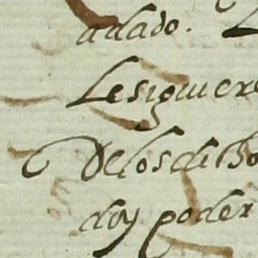 adado. L
Lesiguiere
Delosdi Bo
doy poder